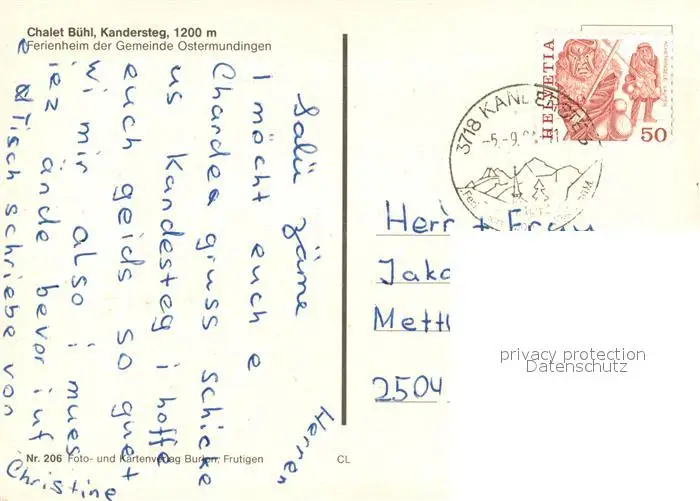 Chalet Bühl, Kandersteg, 1200 m
Ferienheim der Gemeinde Ostermundingen
Salü zäme
I möcht euch e
Charde gruss schicke
us Kandesteg i hoffe
euch geids so guet
wi mir also i mues
iez ände bevor i uf
Tisch schriebe von
Christine
Herren
Nr. 206 Foto- und Kartenverlag Burlon, Frutigen
CL
HELVETIA
50
3718 KANDERSTEG
-5.-9.
Herr + Frau
Jako
Mettl
2504
privacy protection
Datenschutz